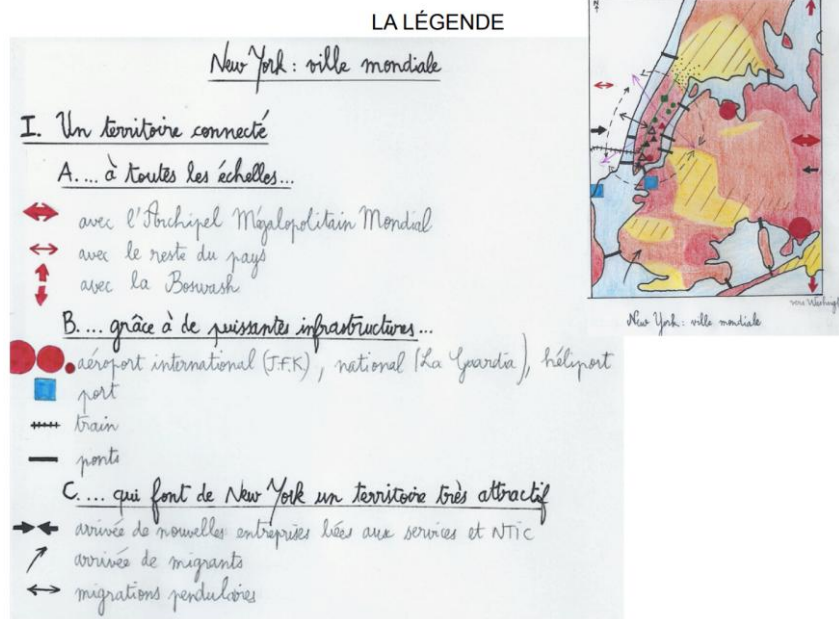 LA LÉGENDE
New York : ville mondiale
I. Un territoire connecté
A. ... à toutes les échelles...
avec l'Archipel Mégalopolitain Mondial
avec le reste du pays
avec la Boswash
B. ... grâce à de puissantes infrastructures...
aéroport international (J.F.K), national (La Guardia), héliport
port
train
ponts
C. ... qui font de New York un territoire très attractif
arrivée de nouvelles entreprises liées aux services et NTIC
arrivée de migrants
migrations pendulaires
N
vers
New York : ville mondiale